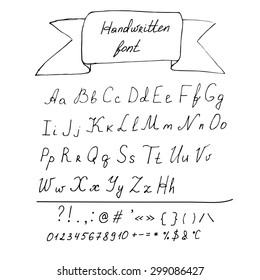 Handwritten
font
Aa Bb Cc Dd Ee Ff Gg
Ii Jj Kk Ll Mm Nn Oo
Pp Rr Qq Ss Tt Uu Vv
Ww Xx Yy Zz Hh
?!.,:@#'«»{}()/\
012345678910+-=*%$&℃
shutterstock.com · 299086427